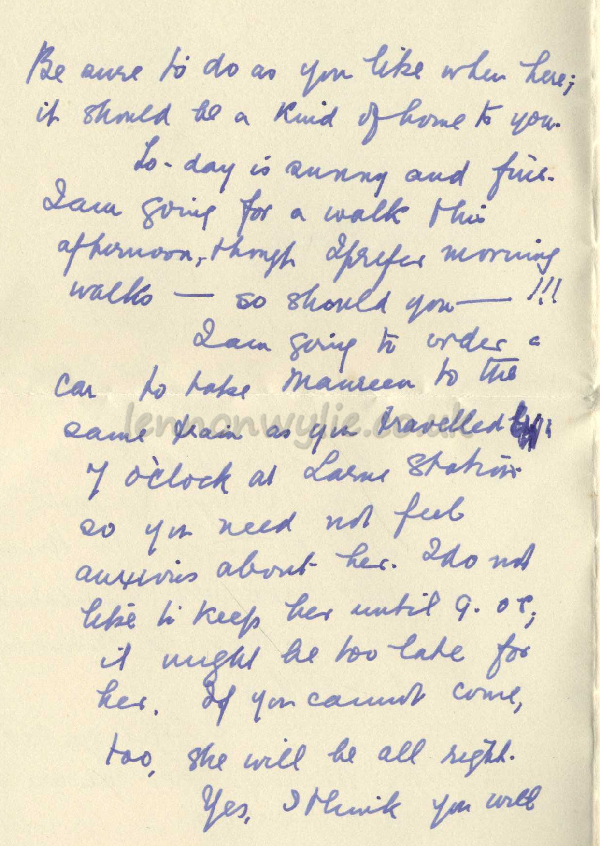 Be sure to do as you like when here;
it should be a kind of home to you.
To-day is sunny and fine.
I am going for a walk this
afternoon, though I prefer morning
walks — so should you — !!!
I am going to order a
car to take Maureen to the
lennonwylie.co.uk
same train as you travelled
7 o'clock at Larne Station
so you need not feel
anxious about her. I do not
like to keep her until 9. or,
it might be too late for
her. If you cannot come,
too, she will be all right.
Yes, I think you will